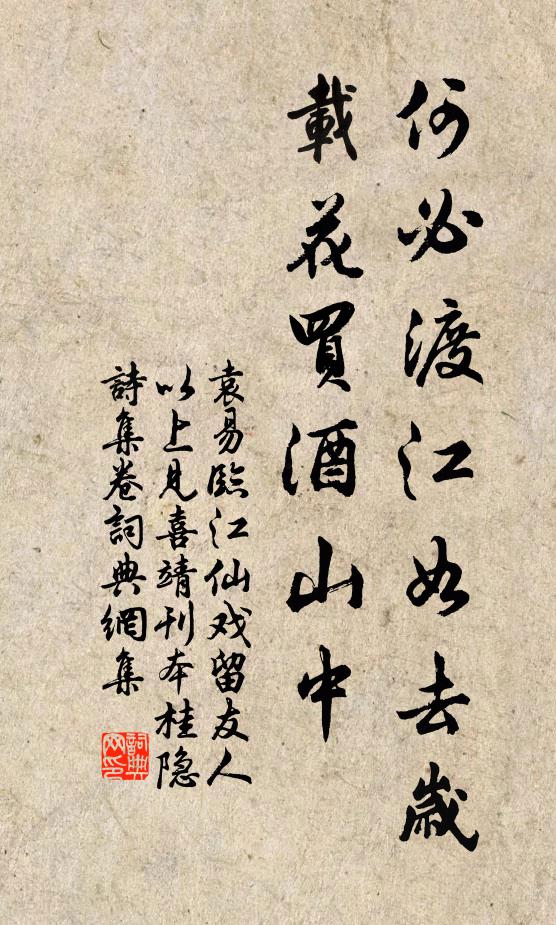 何必渡江如去歲
載花買酒山中
袁易臨江仙戏留友人
以上見喜靖刊本桂隐
詩集卷詞典網集
詞典网印